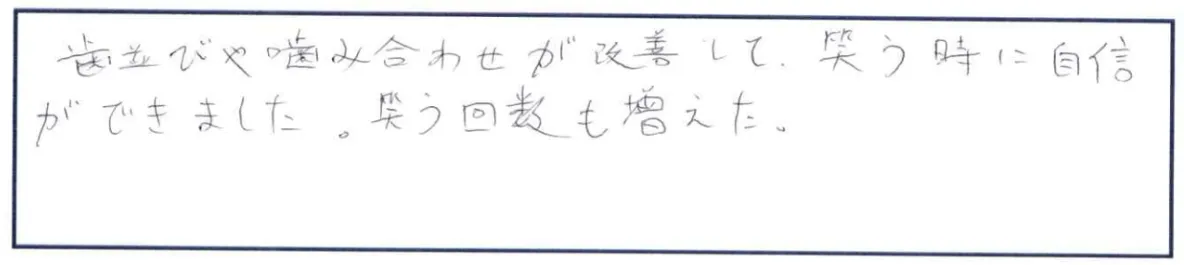 歯並びや噛み合わせが改善して、笑う時に自信
ができました。笑う回数も増えた。